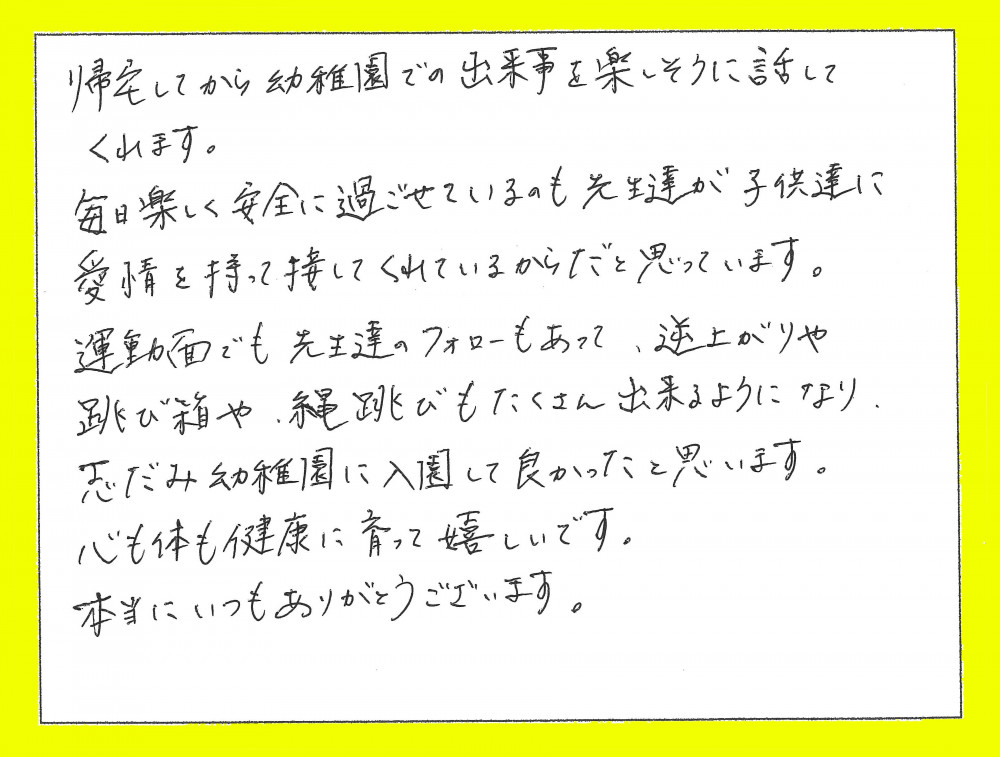 帰宅してから幼稚園での出来事を楽しそうに話して
くれます。
毎日楽しく安全に過ごせているのも先生達が子供達に
愛情を持って接してくれているからだと思っています。
運動面でも先生達のフォローもあって、逆上がりや
跳び箱や、縄跳びもたくさん出来るようになり、
志だみ幼稚園に入園して良かったと思います。
心も体も健康に育って嬉しいです。
本当にいつもありがとうございます。